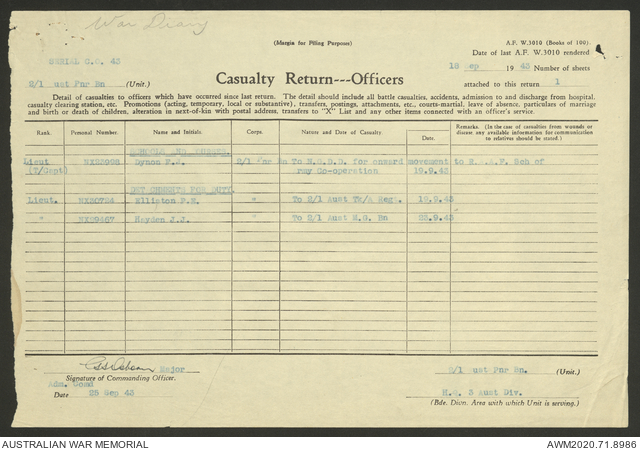 War Diary
(Margin for Filing Purposes)
A.F. W.3010 (Books of 100).
Date of last A.F. W.3010 rendered
SERIAL C.O. 43
18 Sep 1943 Number of sheets
2/1 Aust Pnr Bn (Unit.)
Casualty Return---Officers
attached to this return 1
Detail of casualties to officers which have occurred since last return. The detail should include all battle casualties, accidents, admission to and discharge from hospital,
casualty clearing station, etc. Promotions (acting, temporary, local or substantive), transfers, postings, attachments, etc., courts-martial, leave of absence, particulars of marriage
and birth or death of children, alteration in next-of-kin with postal address, transfers to "X" List and any other items connected with an officer's service.
Rank. Personal Number. Name and Initials. Corps. Nature and Date of Casualty. Date. Remarks. (In the case of casualties from wounds or disease any available information for communication to relatives should be stated.)
Lieut Dynon 2/1 Pnr Bn To N.G.D.D. for onward movement to R.A.A.F. Sch of
(T/Capt) Army Co-operation 19.9.43
DETACHMENTS FOR DUTY.
Lieut. Elliston P. To 2/1 Aust Tk/A Regt. 19.9.43
" Hayden J.J. " To 2/1 Aust M.G. Bn
Major
Signature of Commanding Officer.
2/1 Aust Pnr Bn. (Unit.)
Adm. Comd
Date 25 Sep 43
H.Q. 3 Aust Div.
(Bde. Divn. Area with which Unit is serving.)
AUSTRALIAN WAR MEMORIAL
AWM2020.71.8986